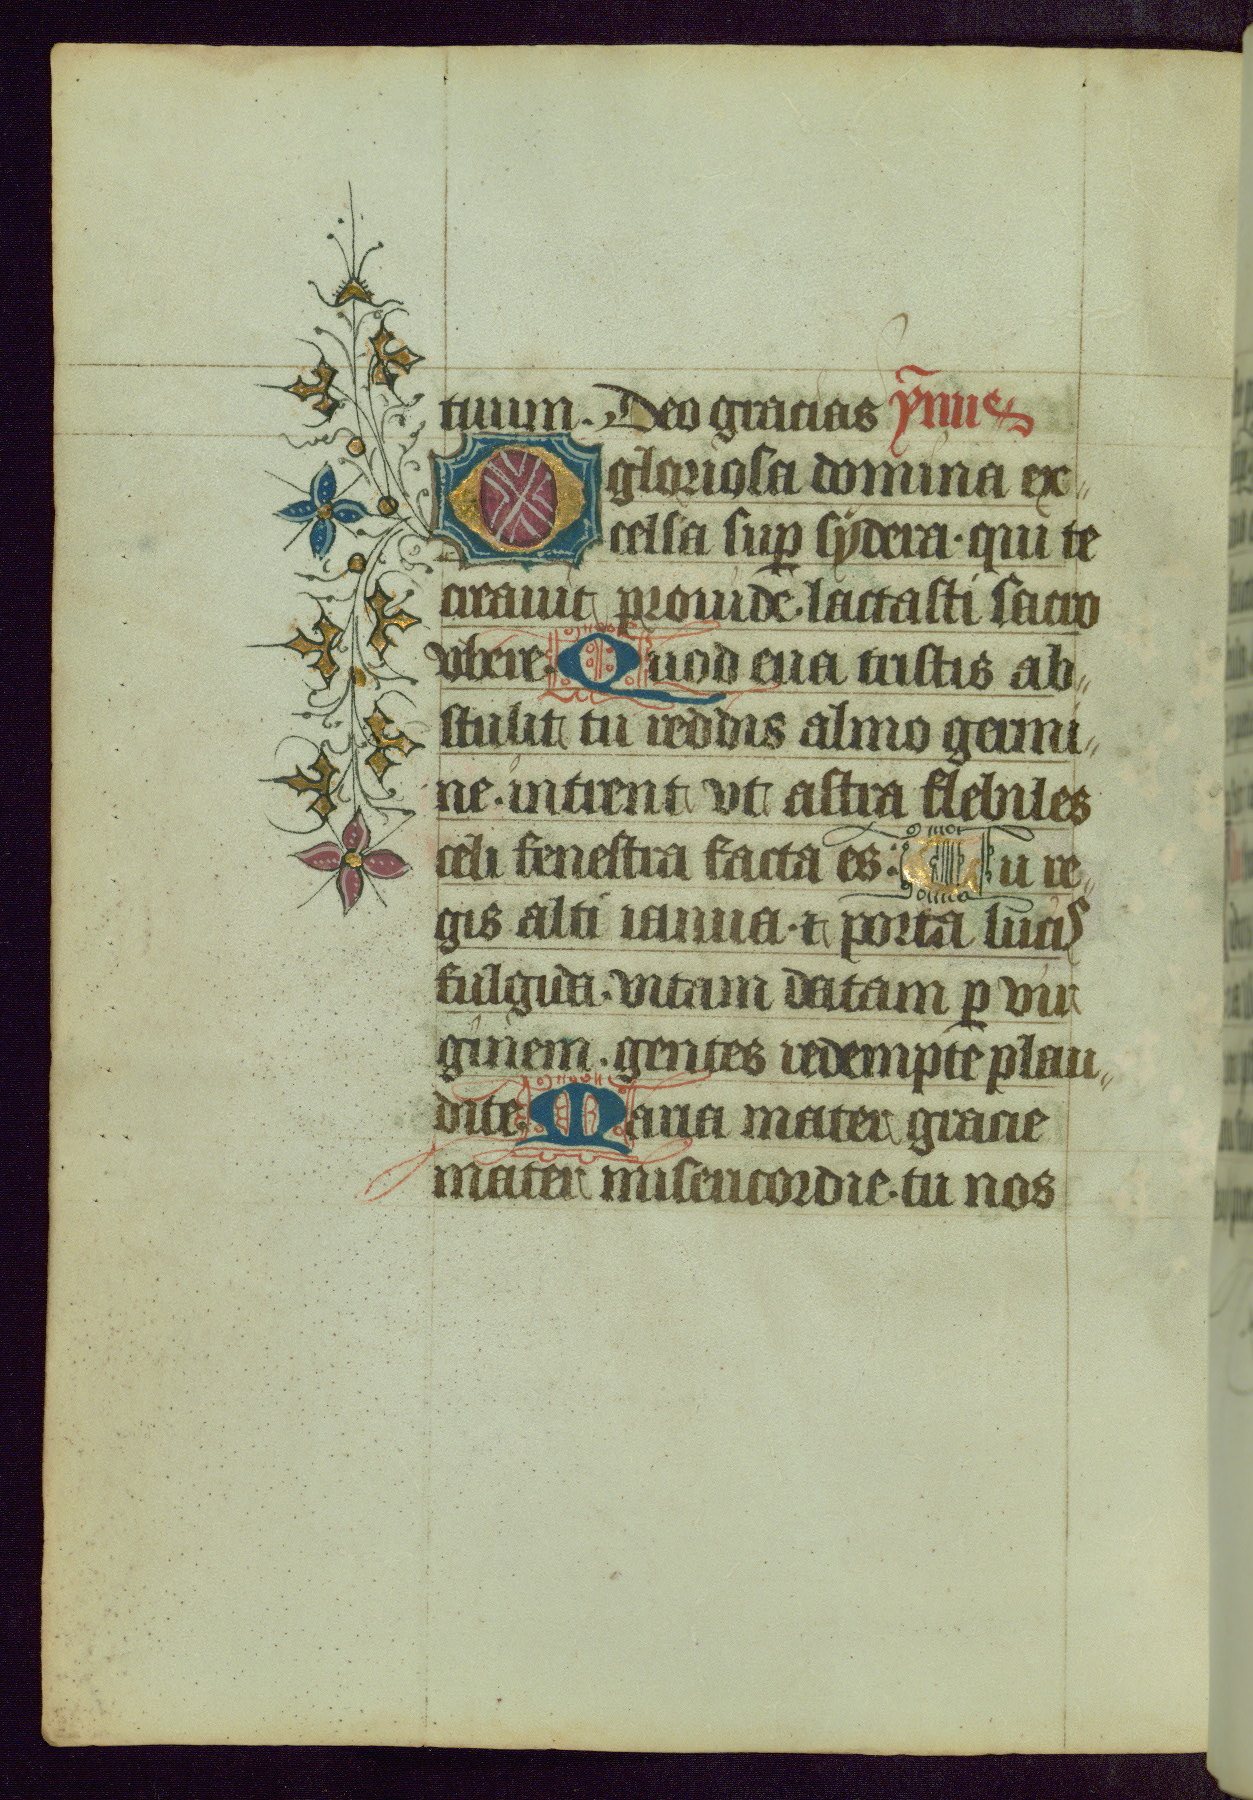 tuum. Deo gracias ỹmus
O gloriosa domina ex
celsa sup sydera. qui te
creauit prouide. lactasti sacro
vbere. Quod eua tristis ab
stulit tu reddis almo germi
ne. intrent vt astra flebiles
celi fenestra facta es. Tu re
gis alti ianua. et porta lucis
fulgida. vitam datam p vir
ginem. gentes redempte plau
dite. Maria mater gracie
mater misericordie. tu nos